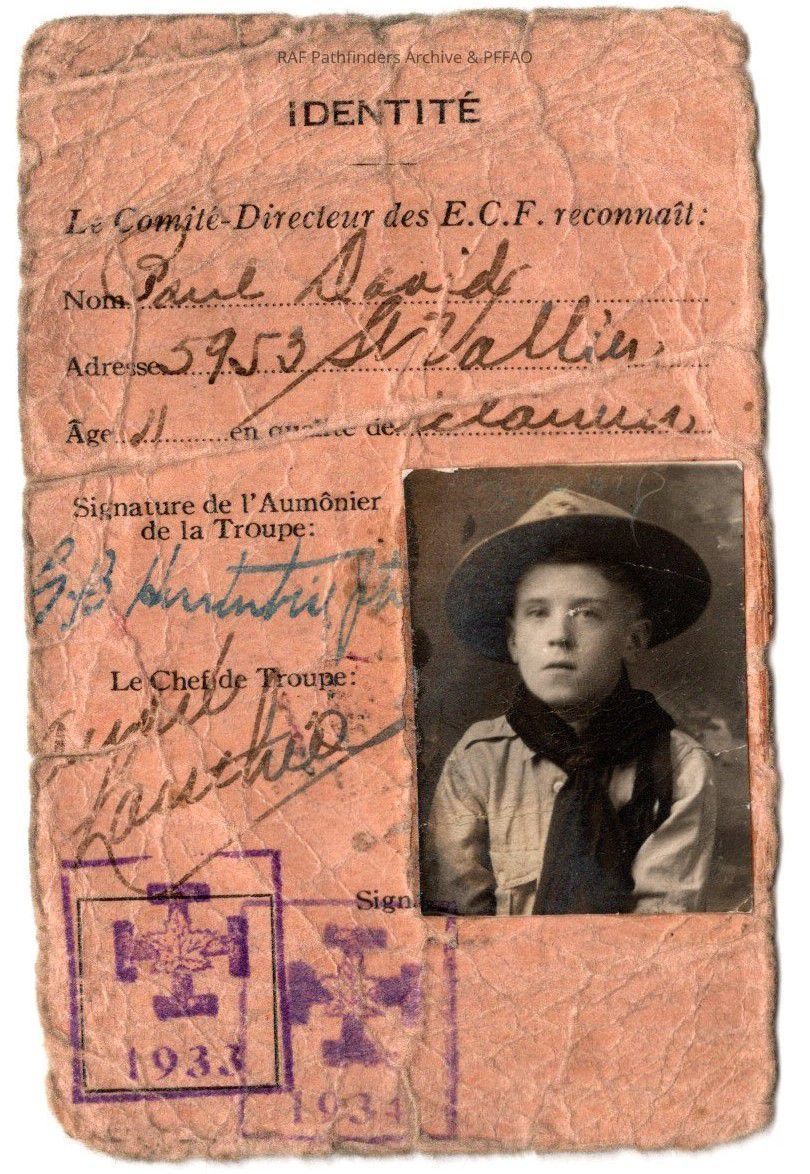 RAF Pathfinders Archive & PFFAO
IDENTITÉ
Le Comité-Directeur des E.C.F. reconnaît:
Nom Paul David
Adresse 5953 St Vallier
Âge 11 en qualité de
Signature de l'Aumônier
de la Troupe:
Le Chef de Troupe:
Sign
1933
193